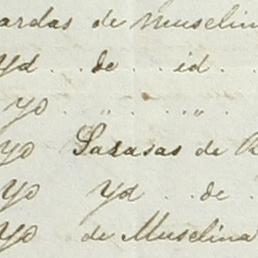 ardas de Muselin
Yd . . de . . id .
Yd . „ . . . „ .
Yd Sarasas de
Yd Yd . . de .
Yd de Muselina